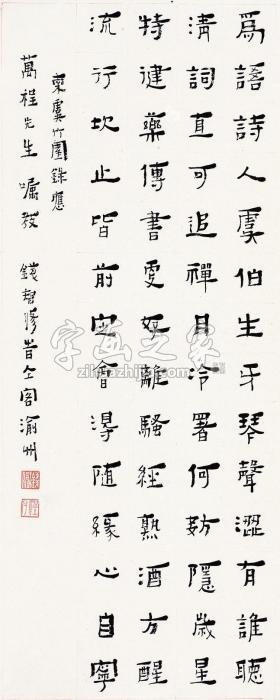 爲語詩人虞伯生牙琴聲澀有誰聽
清詞直可追禪月冷署何妨隱歲星
特健藥傳書更好離騷經熟酒方醒
流行坎止皆前定會得隨緣心自寧
柬虞竹園錄應
萬程先生囑教 錢智修旹仝客渝州
字画之家